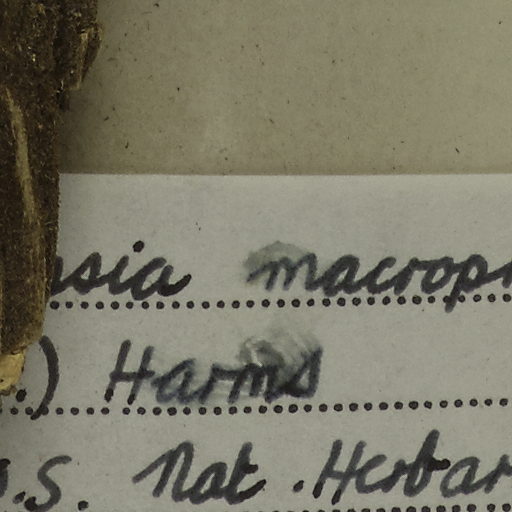 sia macrop
.) Harms
.S. Nat. Herbar